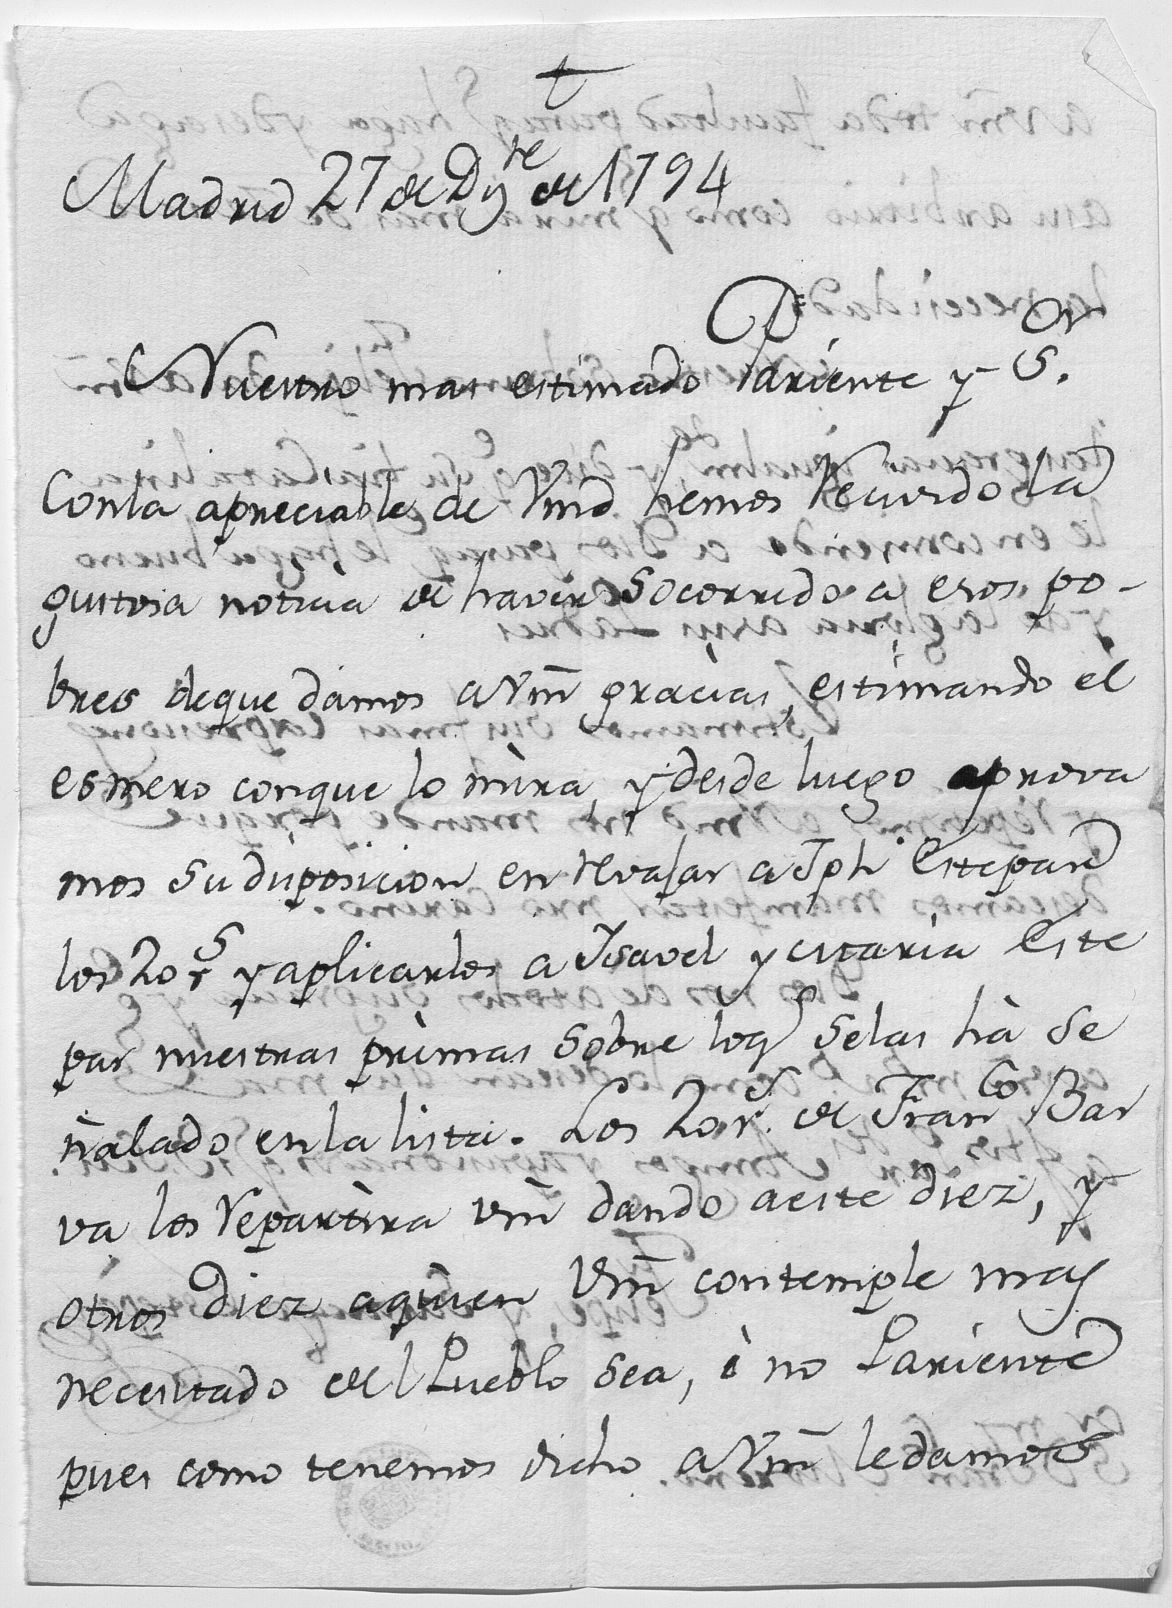 Madrid 27 de Dizre de 1794
Nuestro mas estimado Pariente y Sor.
Conla apreciable de Vmd hemos Recivido la
gustosa noticia de haver socorrido a esos po-
bres deque damos a Vm gracias, estimando el
esmero conque lo mira, y desde luego aprova
mos su disposicion en revajar a Jph Estepar
los 20 rs y aplicarles a Isavel y citaria Este
par nuestras primas sobre loq selas hà se
ñalado enla lista. Los 20 rs. de Franco Bar
va los Repartira Vm dando aeste diez, y
otros Diez aquien Vm contemple mas
necesitado del Pueblo sea, ò no Pariente
pues como tenemos dicho a Vm ledamos